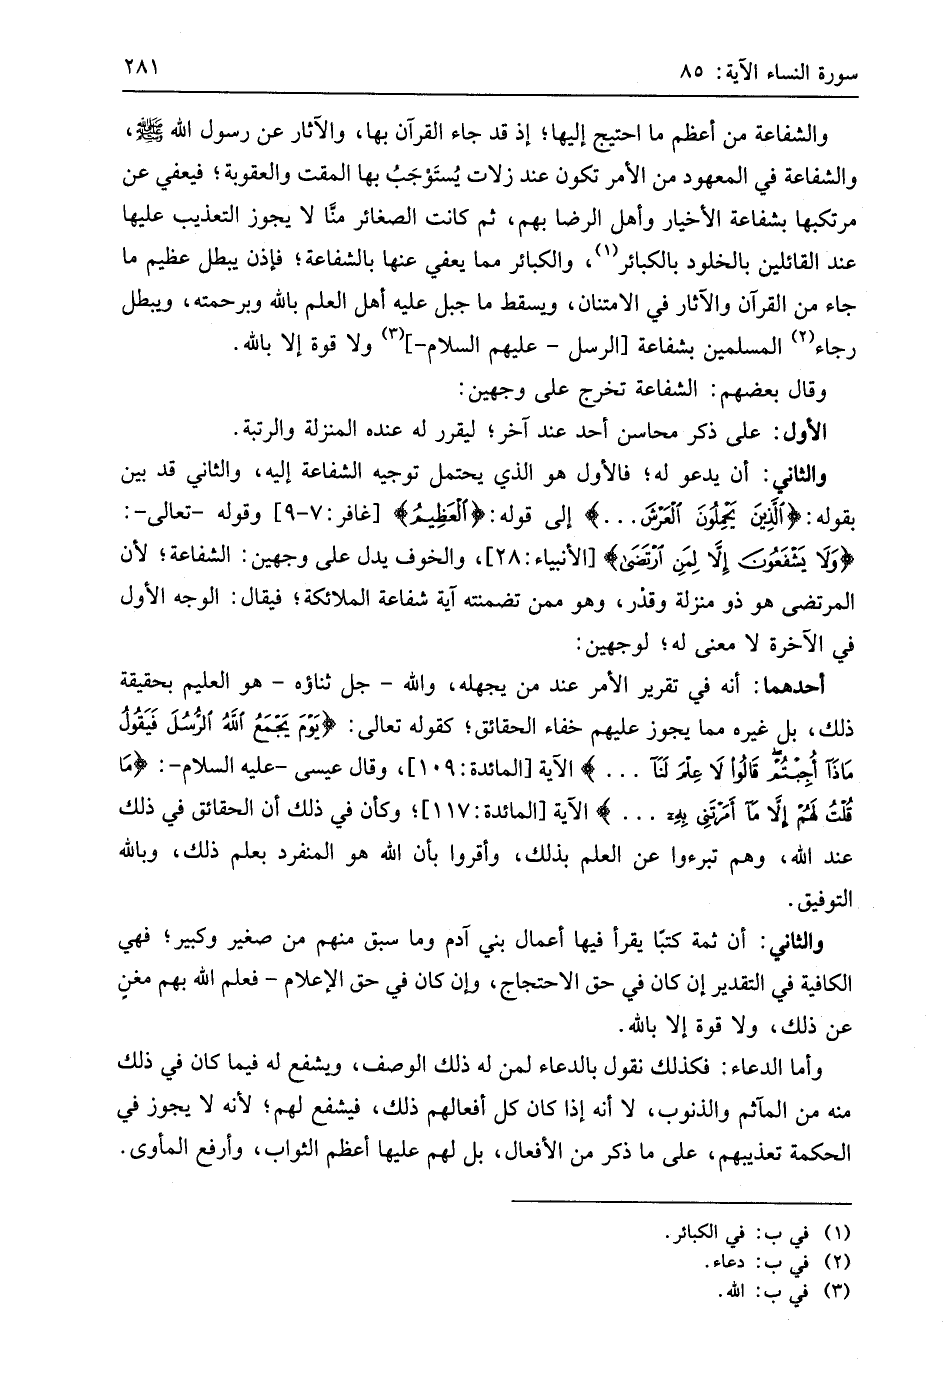 سورة النساء الآية: ٨٥
٢٨١
والشفاعة من أعظم ما احتيج إليها؛ إذ قد جاء القرآن بها، والآثار عن رسول الله ﷺ،
والشفاعة في المعهود من الأمر تكون عند زلات يُستَوْجَبُ بها المقت والعقوبة؛ فيعفي عن
مرتكبها بشفاعة الأخيار وأهل الرضا بهم، ثم كانت الصغائر منَّا لا يجوز التعذيب عليها
عند القائلين بالخلود بالكبائر(١)، والكبائر مما يعفي عنها بالشفاعة؛ فإذن يبطل عظيم ما
جاء من القرآن والآثار في الامتنان، ويسقط ما جبل عليه أهل العلم بالله وبرحمته، ويبطل
رجاء(٢) المسلمين بشفاعة [الرسل - عليهم السلام-](٣) ولا قوة إلا بالله.
وقال بعضهم: الشفاعة تخرج على وجهين:
الأول: على ذكر محاسن أحد عند آخر؛ ليقرر له عنده المنزلة والرتبة.
والثاني: أن يدعو له؛ فالأول هو الذي يحتمل توجيه الشفاعة إليه، والثاني قد بين
بقوله: ﴿ٱلَّذِينَ يَحْمِلُونَ ٱلْعَرْشَ...﴾ إلى قوله: ﴿ٱلْعَظِيمُ﴾ [غافر: ٧-٩] وقوله -تعالى-:
﴿وَلَا يَشْفَعُونَ إِلَّا لِمَنِ ٱرْتَضَىٰ﴾ [الأنبياء: ٢٨]، والخوف يدل على وجهين: الشفاعة؛ لأن
المرتضى هو ذو منزلة وقدر، وهو ممن تضمنته آية شفاعة الملائكة؛ فيقال: الوجه الأول
في الآخرة لا معنى له؛ لوجهين:
أحدهما: أنه في تقرير الأمر عند من يجهله، والله - جل ثناؤه - هو العليم بحقيقة
ذلك، بل غيره مما يجوز عليهم خفاء الحقائق؛ كقوله تعالى: ﴿يَوْمَ يَجْمَعُ ٱللَّهُ ٱلرُّسُلَ فَيَقُولُ
مَاذَآ أُجِبْتُمْۖ قَالُوا۟ لَا عِلْمَ لَنَآ ...﴾ الآية [المائدة: ١٠٩]، وقال عيسى -عليه السلام-: ﴿مَا
قُلْتُ لَهُمْ إِلَّا مَآ أَمَرْتَنِى بِهِۦٓ ...﴾ الآية [المائدة: ١١٧]؛ وكأن في ذلك أن الحقائق في ذلك
عند الله، وهم تبرءوا عن العلم بذلك، وأقروا بأن الله هو المنفرد بعلم ذلك، وبالله
التوفيق.
والثاني: أن ثمة كتبًا يقرأ فيها أعمال بني آدم وما سبق منهم من صغير وكبير؛ فهي
الكافية في التقدير إن كان في حق الاحتجاج، وإن كان في حق الإعلام - فعلم الله بهم مغنٍ
عن ذلك، ولا قوة إلا بالله.
وأما الدعاء: فكذلك نقول بالدعاء لمن له ذلك الوصف، ويشفع له فيما كان في ذلك
منه من المآثم والذنوب، لا أنه إذا كان كل أفعالهم ذلك، فيشفع لهم؛ لأنه لا يجوز في
الحكمة تعذيبهم، على ما ذكر من الأفعال، بل لهم عليها أعظم الثواب، وأرفع المأوى.
(١) في ب: في الكبائر.
(٢) في ب: دعاء.
(٣) في ب: الله.